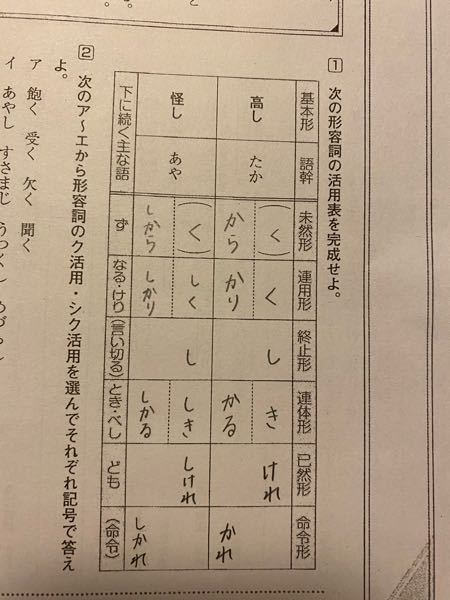 1 次の形容詞の活用表を完成せよ。
基本形 語幹 未然形 連用形 終止形 連体形 已然形 命令形
高し たか (く) く し き けれ
から かり かる かれ
怪し あや (く) しく し しき しけれ
しから しかり しかる しかれ
下に続く主な語 ず なる・けり (言い切る) とき・べし ども (命令)
2 次のア〜エから形容詞のク活用・シク活用を選んでそれぞれ記号で答え
よ。
ア 飽く 受く 欠く 聞く
イ あやし すさまじ うつくし